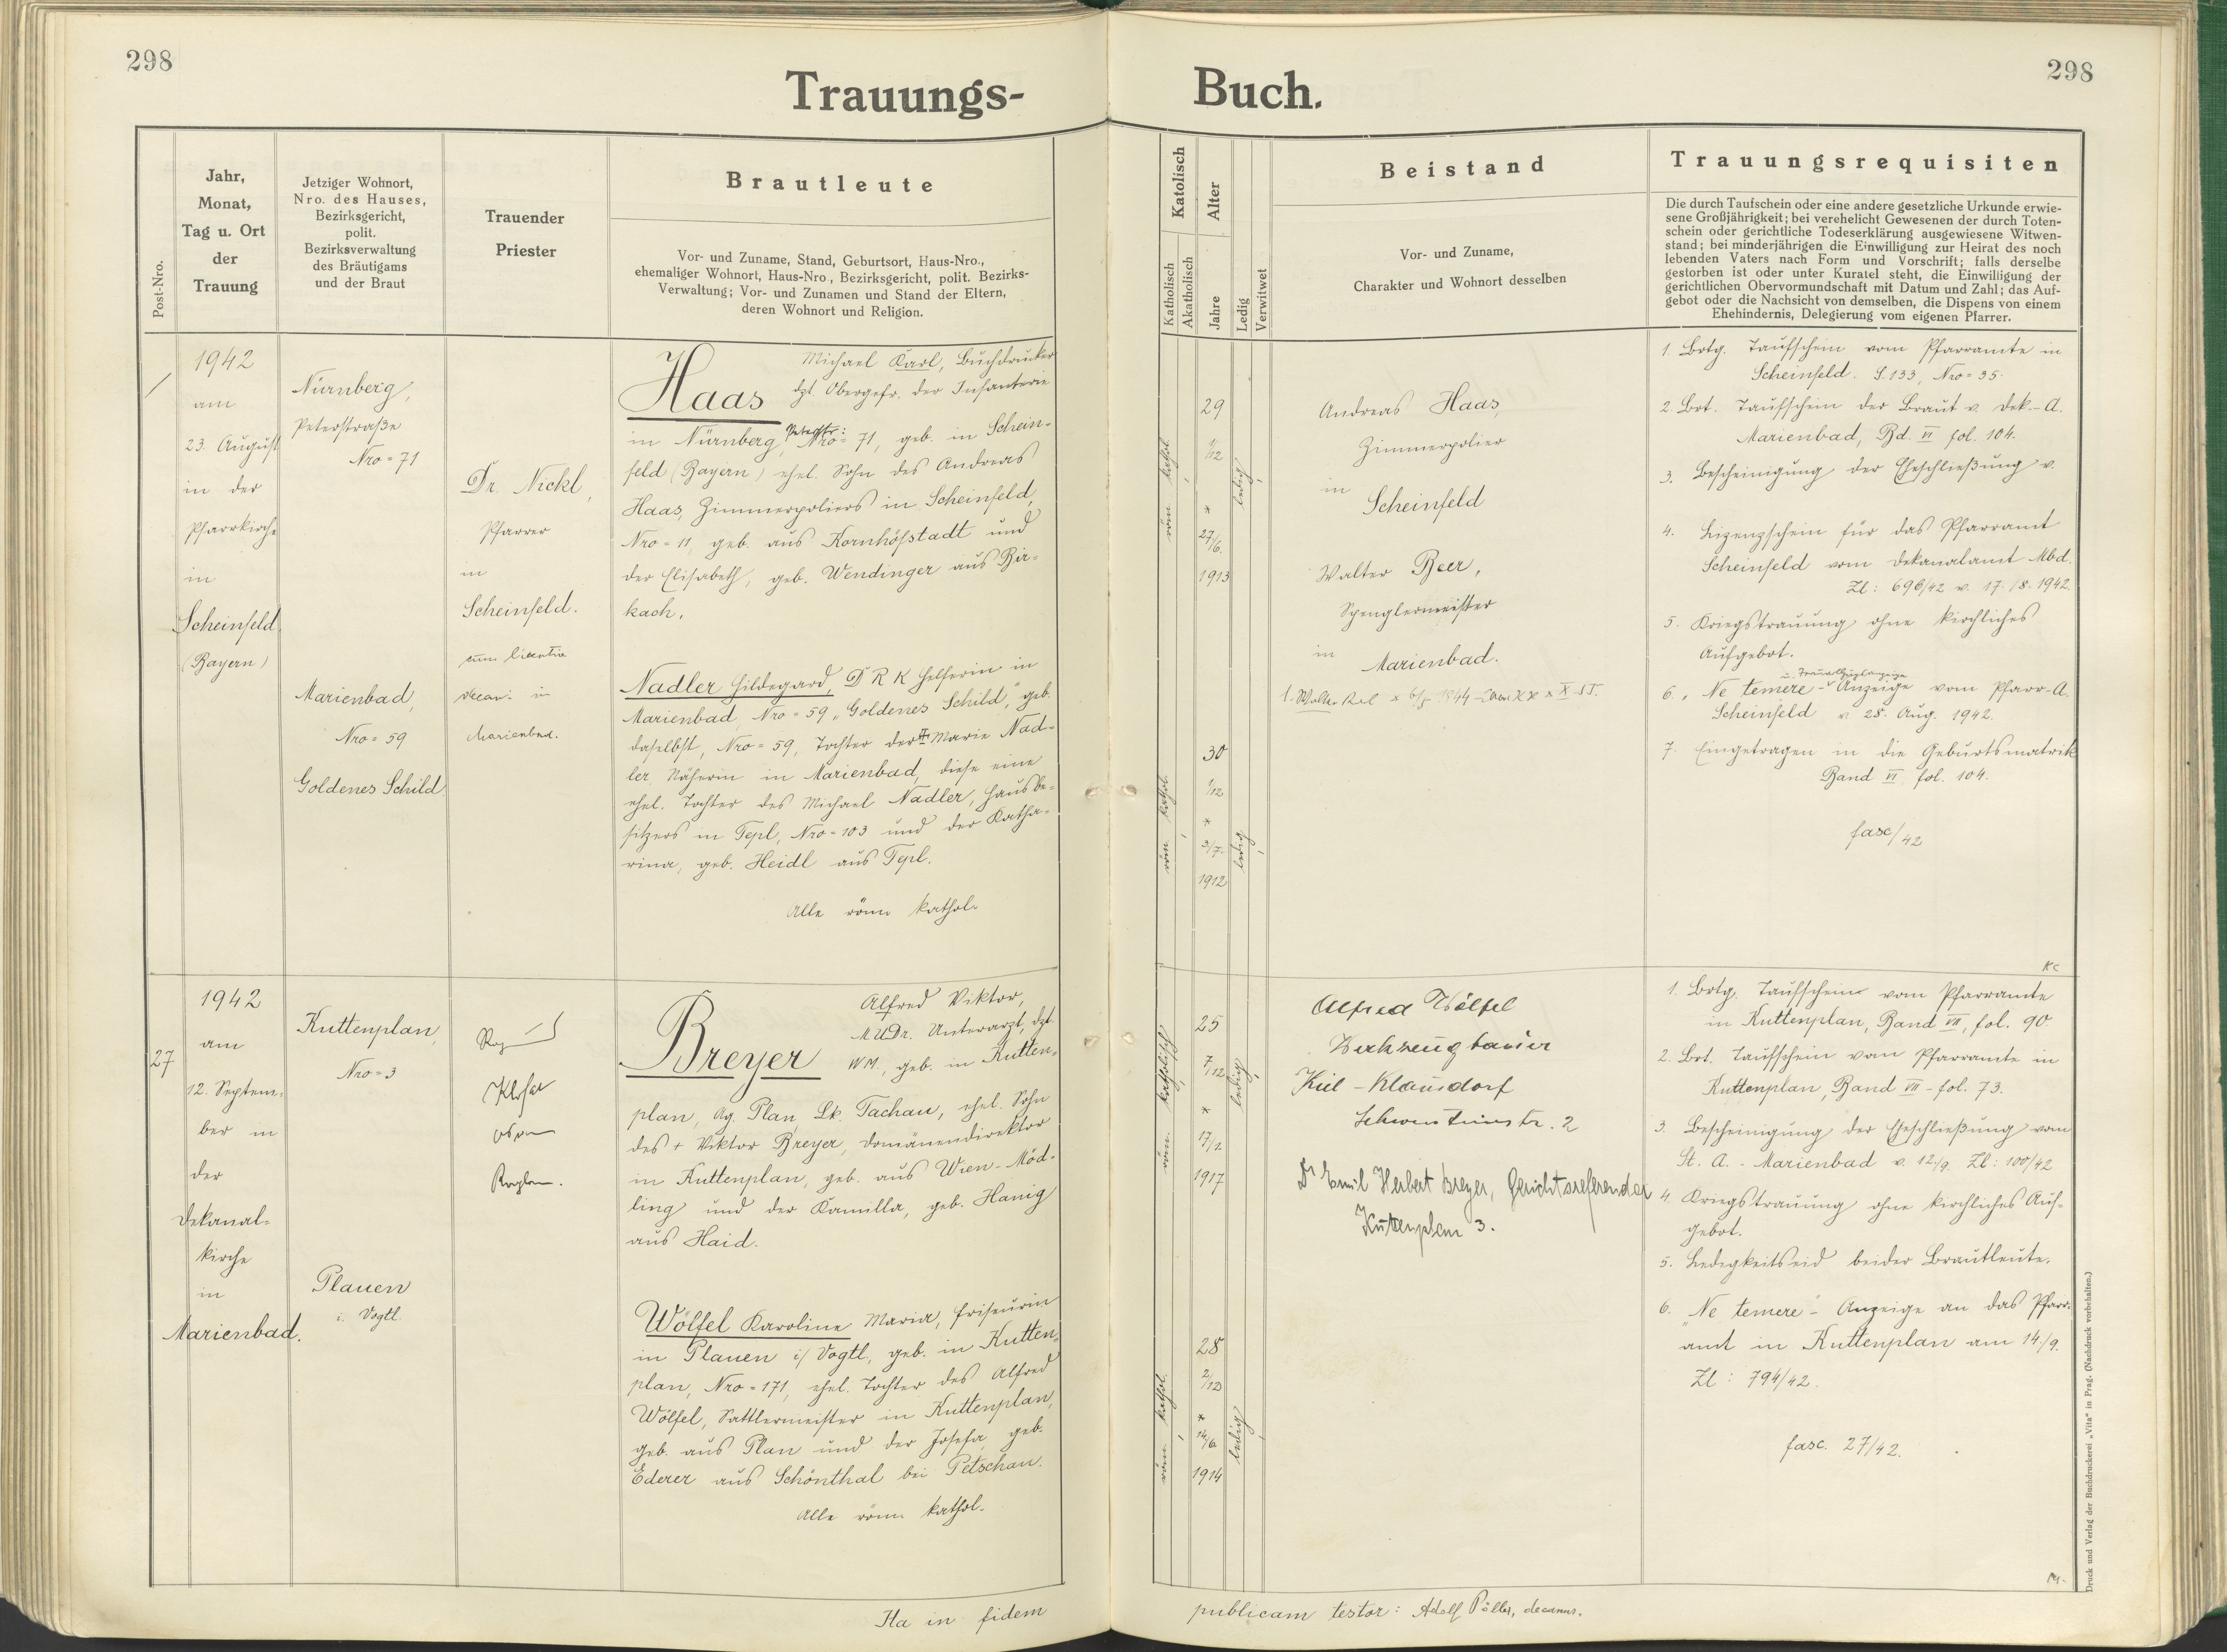 298
298
Trauungs- Buch.
Post-Nro.
Jahr,
Monat,
Tag u. Ort
der
Trauung
Jetziger Wohnort,
Nro. des Hauses,
Bezirksgericht,
polit.
Bezirksverwaltung
des Bräutigams
und der Braut
Trauender
Priester
Brautleute
Vor- und Zuname, Stand, Geburtsort, Haus-Nro.,
ehemaliger Wohnort, Haus-Nro., Bezirksgericht, polit. Bezirks-
Verwaltung; Vor- und Zunamen und Stand der Eltern,
deren Wohnort und Religion.
Katolisch
Katholisch
Akatholisch
Alter
Jahre
Ledig
Verwitwet
Beistand
Vor- und Zuname,
Charakter und Wohnort desselben
Trauungsrequisiten
Die durch Taufschein oder eine andere gesetzliche Urkunde erwie-
sene Großjährigkeit; bei verehelicht Gewesenen der durch Toten-
schein oder gerichtliche Todeserklärung ausgewiesene Witwen-
stand; bei minderjährigen die Einwilligung zur Heirat des noch
lebenden Vaters nach Form und Vorschrift; falls derselbe
gestorben ist oder unter Kuratel steht, die Einwilligung der
gerichtlichen Obervormundschaft mit Datum und Zahl; das Auf-
gebot oder die Nachsicht von demselben, die Dispens von einem
Ehehindernis, Delegierung vom eigenen Pfarrer.
1942
am
23. August
in der
Pfarrkirche
in
Scheinfeld
(Bayern)
Nürnberg,
Peterstraße
Nro = 71
Marienbad,
Nro = 59
Goldenes Schild
Dr. Nickl,
Pfarrer
in
Scheinfeld.
cum licentia
decani in
Marienbad.
Haas Michael Karl, Buchdrucker
dzt. Obergefr. der Infanterie
in Nürnberg, Peterstr: Nro = 71, geb. in Schein-
feld (Bayern) ehel. Sohn des Andreas
Haas, Zimmerpoliers in Scheinfeld,
Nro = 11, geb. aus Kornhöfstadt und
der Elisabeth, geb. Wendinger aus Bir-
kach.
Nadler Hildegard, D R K Helferin in
Marienbad, Nro = 59 „Goldenes Schild", geb.
daselbst, Nro = 59, Tochter der Marie Nad-
ler, Näherin in Marienbad, diese eine
ehel. Tochter des Michael Nadler, Hausbe-
sitzers in Tepl, Nro = 103 und der Katha-
rina, geb. Heidl aus Tepl.
Alle röm. kathol.
röm. kathol.
29
1/12
*
27/6.
1913
ledig
röm. kathol.
30
1/12
*
3/7.
1912
ledig
Andreas Haas,
Zimmerpolier
in
Scheinfeld
Walter Beer,
Spenglermeister
in
Marienbad.
1. Walter 1944
1. Brtg. Taufschein vom Pfarramte in
Scheinfeld. S. 133, Nro = 35.
2. Brt. Taufschein der Braut v. Dek.-A.
Marienbad, Bd. VI fol. 104.
3. Bescheinigung der Eheschließung v.
4. Lizenzschein für das Pfarramt
Scheinfeld vom Dekanalamt Mbd.
Zl: 696/42 v. 17./8. 1942.
5. Kriegstrauung ohne kirchliches
Aufgebot.
6. „Ne temere"- Anzeige vom Pfarr-A.
Scheinfeld v. 28. Aug. 1942.
7. Eingetragen in die Geburtsmatrik
Band VI fol. 104.
fasc/42
27
1942
am
12. Septem-
ber in
der
Dekanal-
kirche
in
Marienbad.
Kuttenplan,
Nro = 3
Plauen
i. Vogtl.
Breyer Alfred Viktor,
MUDr. Unterarzt, dzt.
WM., geb. in Kutten-
plan, Ag. Plan, Lk. Tachau, ehel. Sohn
des + Viktor Breyer, Domänendirektor
in Kuttenplan, geb. aus Wien-Möd-
ling und der Kamilla, geb. Hanig
aus Haid.
Wölfel Karoline Maria, Friseurin
in Plauen i/ Vogtl., geb. in Kutten-
plan, Nro = 171, ehel. Tochter des Alfred
Wölfel, Sattlermeister in Kuttenplan,
geb. aus Plan und der Josefa, geb.
Ederer aus Schönthal bei Petschau.
Alle röm. kathol.
röm. katholisch
25
7/12
*
17/1.
1917
ledig
röm. kathol.
28
2/12
*
14/6.
1914
ledig
Alfred Wölfel
Werkzeugbauer
Kiel - Klausdorf
Schwentinestr. 2
Dr Emil Herbert Breyer, Gerichtsreferendar
Kuttenplan 3.
1. Brtg. Taufschein vom Pfarramte
in Kuttenplan, Band VII, fol. 90.
2. Brt. Taufschein vom Pfarramte in
Kuttenplan, Band VII - fol. 73.
3. Bescheinigung der Eheschließung vom
St. A. - Marienbad v. 12./9. Zl: 100/42
4. Kriegstrauung ohne kirchliches Auf-
gebot.
5. Ledigkeitseid beider Brautleute.
6. „Ne temere"- Anzeige an das Pfarr-
amt in Kuttenplan am 14./9.
Zl: 794/42.
fasc. 27/42.
Ita in fidem publicam testor: Adolf decanus.
Druck und Verlag der Buchdruckerei „Vita" in Prag. (Nachdruck vorbehalten.)